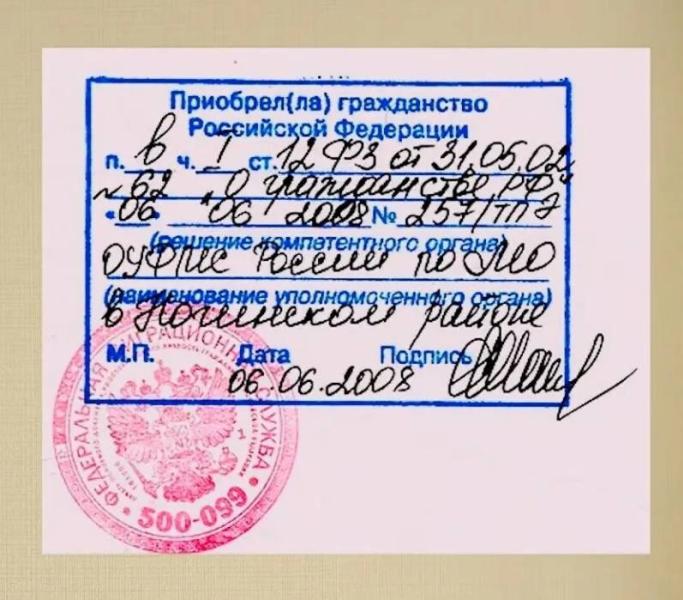 Приобрел(ла) гражданство
Российской Федерации
п. в ч. I ст. 12 ФЗ от 31.05.02
№ 62 "О гражданстве РФ"
"06" "06 2008 № 257/ТП
(решение компетентного органа)
ОУФМС России по МО
(наименование уполномоченного органа)
в Ногинском районе
М.П. Дата Подпись
06.06.2008
ФЕДЕРАЛЬНАЯ МИГРАЦИОННАЯ СЛУЖБА
500-099